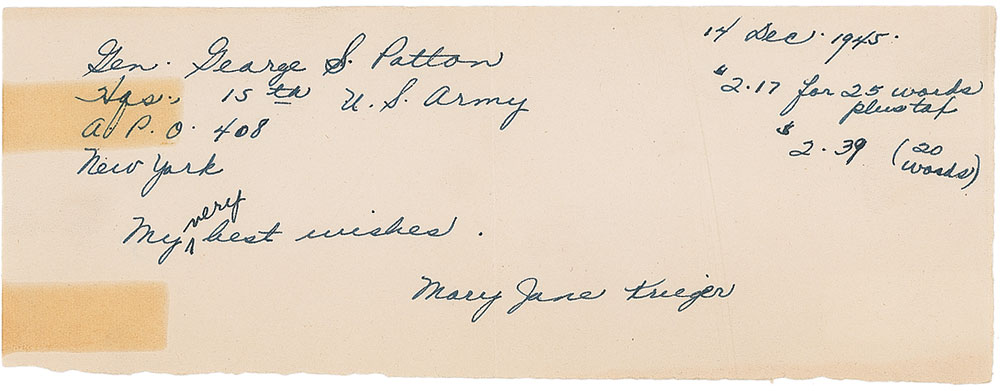 14 Dec. 1945.
Gen. George S. Patton
Hqs., 15th U.S. Army
A.P.O. 408
New York
$2.17 for 25 words
plus tax
$2.39 (20
words)
My very best wishes.
Mary Jane Krieger